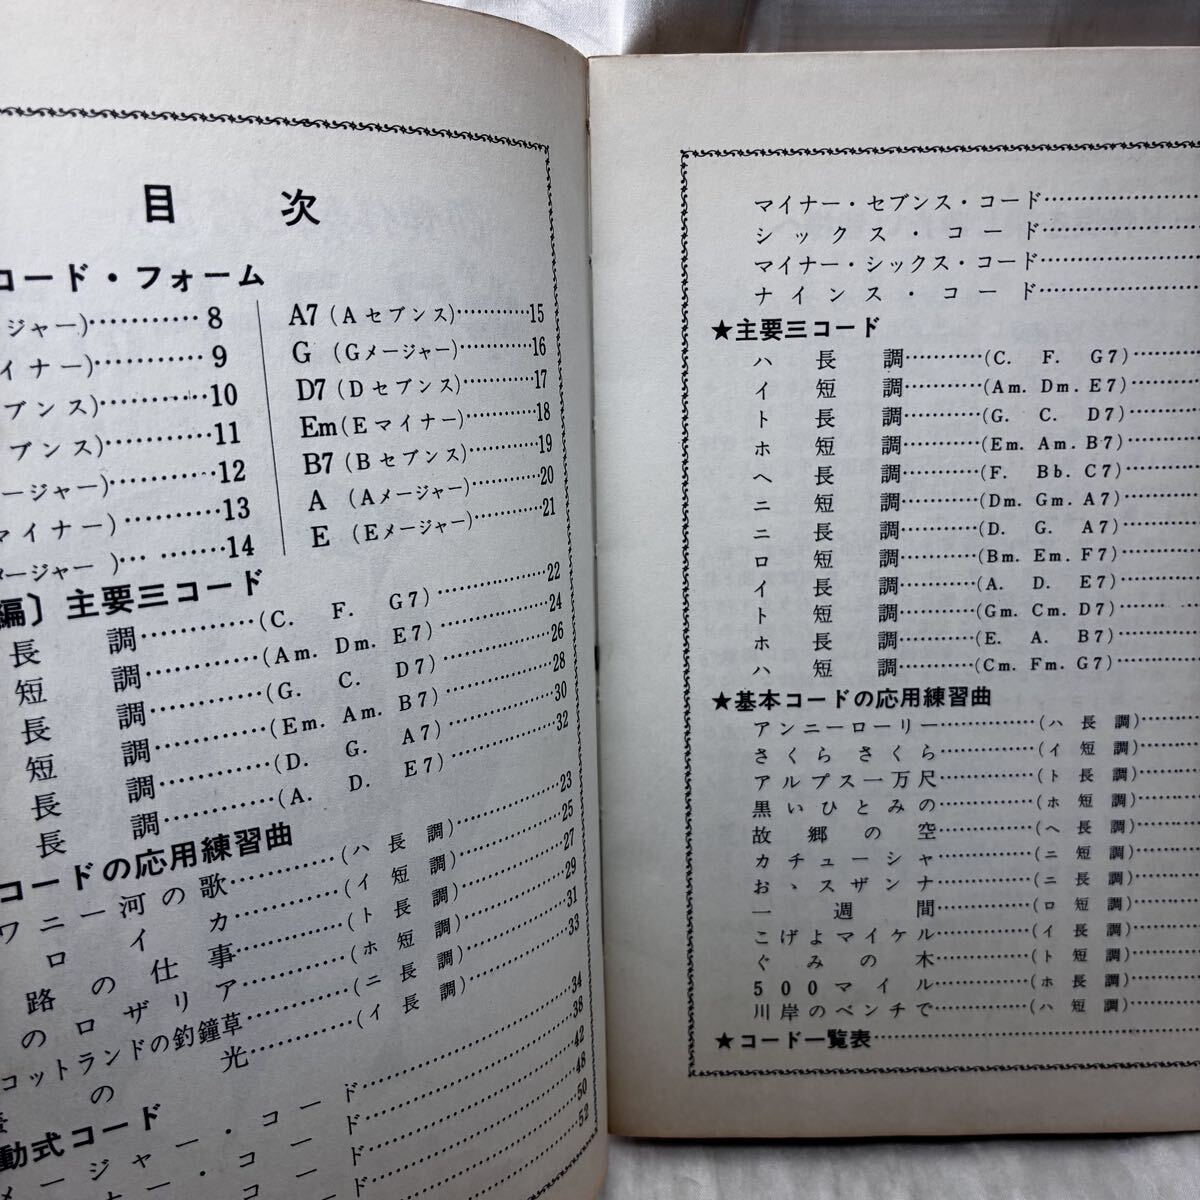 目次
コード・フォーム
ージャー)…………8
イナー)…………9
ブンス)…………10
ブンス)…………11
ージャー)…………12
マイナー)…………13
ージャー)…………14
A7 (Aセブンス)…………15
G (Gメージャー)…………16
D7 (Dセブンス)…………17
Em (Eマイナー)…………18
B7 (Bセブンス)…………19
A (Aメージャー)…………20
E (Eメージャー)…………21
編〕主要三コード
長調…………(C. F. G7)…………22
短調…………(Am. Dm. E7)…………24
長調…………(G. C. D7)…………26
短調…………(Em. Am. B7)…………28
長調…………(D. G. A7)…………30
長調…………(A. D. E7)…………32
コードの応用練習曲
ワニー河の歌…………(ハ長調)…………23
ロイカ…………(イ短調)…………25
路の仕事…………(ト長調)…………27
のロザリア…………(ホ短調)…………29
コットランドの釣鐘草…………(ニ長調)…………31
の光…………(イ長調)…………33
動式コード…………34
メージャー・コード…………38
ー・コード…………42
コード…………48
50
52
マイナー・セブンス・コード…………
シックス・コード…………
マイナー・シックス・コード…………
ナインス・コード…………
★主要三コード
ハ長調…………(C. F. G7)…………
イ短調…………(Am. Dm. E7)…………
ト長調…………(G. C. D7)…………
ホ短調…………(Em. Am. B7)…………
ヘ長調…………(F. Bb. C7)…………
ニ短調…………(Dm. Gm. A7)…………
ニ長調…………(D. G. A7)…………
ロ短調…………(Bm. Em. F7)…………
イ長調…………(A. D. E7)…………
ト短調…………(Gm. Cm. D7)…………
ホ長調…………(E. A. B7)…………
ハ短調…………(Cm. Fm. G7)…………
★基本コードの応用練習曲
アンニーローリー…………(ハ長調)…………
さくらさくら…………(イ短調)…………
アルプス一万尺…………(ト長調)…………
黒いひとみの…………(ホ短調)…………
故郷の空…………(ヘ長調)…………
カチューシャ…………(ニ短調)…………
お、スザンナ…………(ニ長調)…………
一週間…………(ロ短調)…………
こげよマイケル…………(イ長調)…………
ぐみの木…………(ト短調)…………
500マイル…………(ホ長調)…………
川岸のベンチで…………(ハ短調)…………
★コード一覧表…………